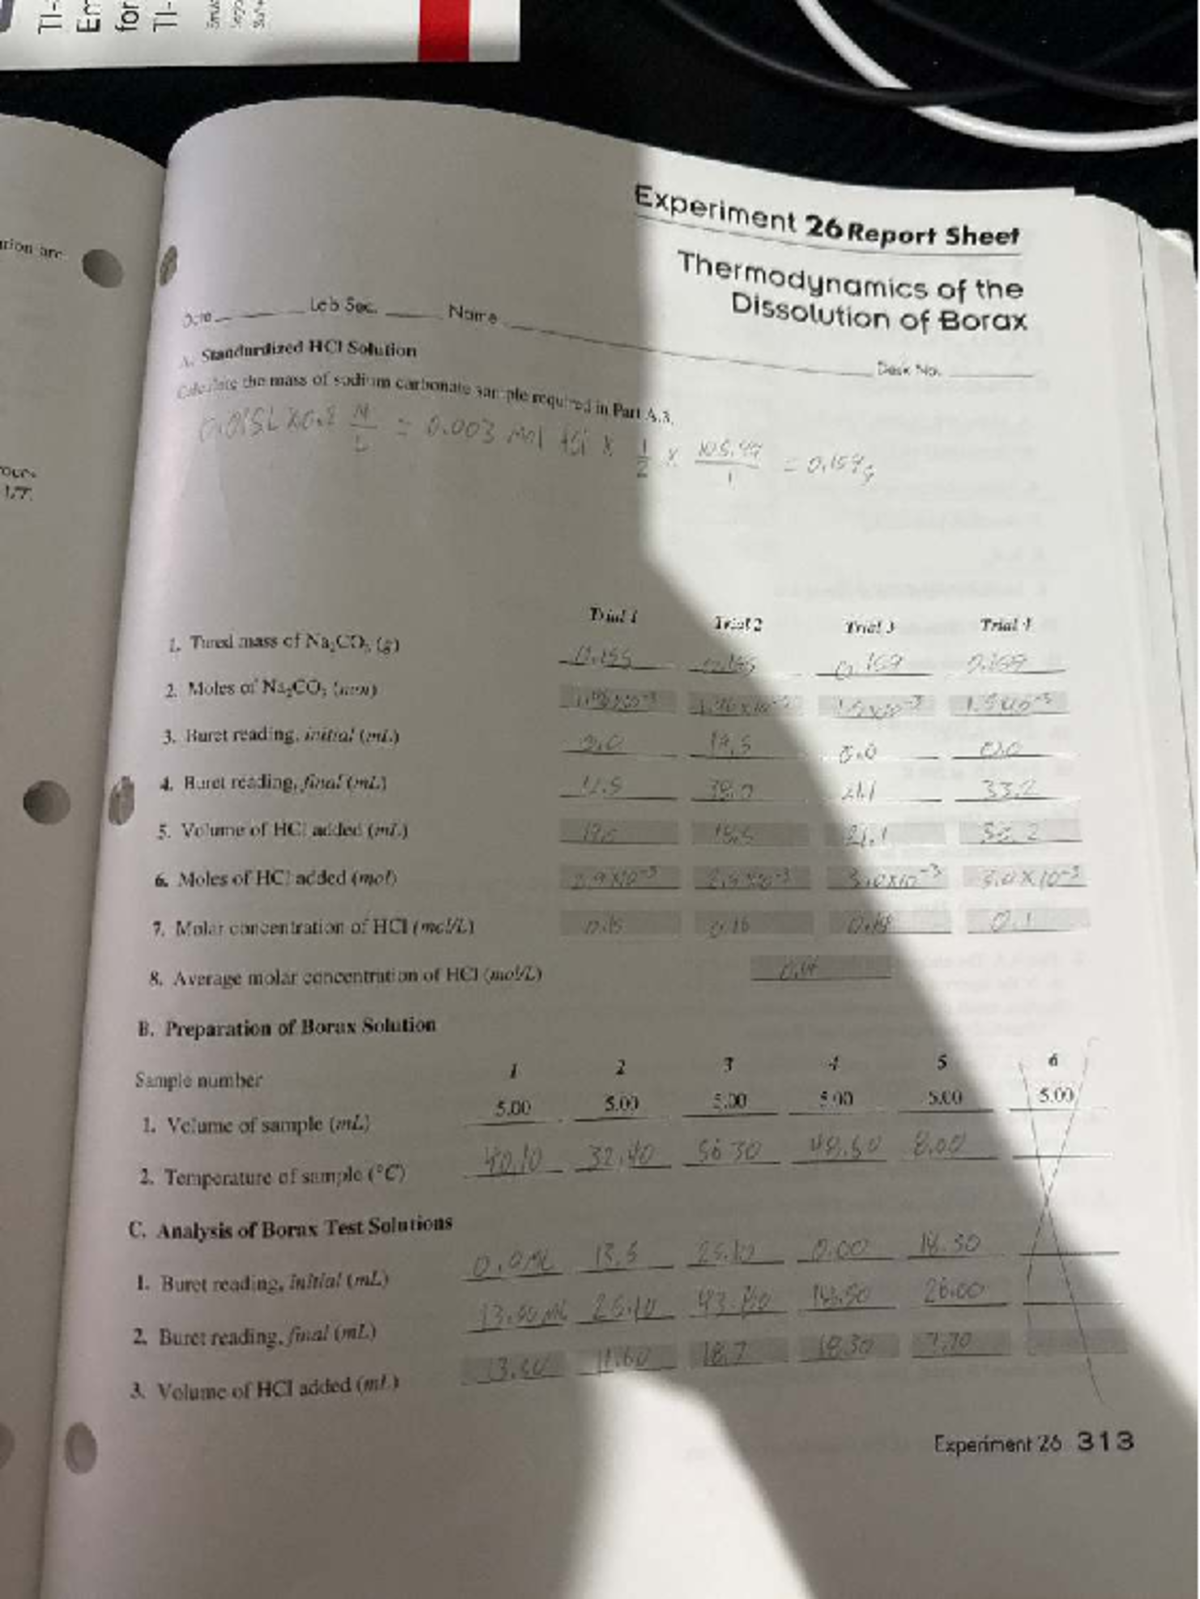 TI-
Em
for
TI-
tion are
Experiment 26 Report Sheet
Thermodynamics of the
Dissolution of Borax
Date Lab Sec. Name Desk No.
A. Standardized HCl Solution
Calculate the mass of sodium carbonate sample required in Part A.3.
0.015L x 0.2 M/L = 0.003 mol HCl x 1/2 x 105.99/1 = 0.159g
Trial 1 Trial 2 Trial 3 Trial 4
1. Tared mass of Na₂CO₃ (g) 0.155 0.155 0.159 0.159
2. Moles of Na₂CO₃ (mol) 1.46x10⁻³ 1.46x10⁻³ 1.5x10⁻³ 1.5x10⁻³
3. Buret reading, initial (mL) 0.0 19.5 0.0 0.0
4. Buret reading, final (mL) 38.0 21.1 33.2
5. Volume of HCl added (mL) 18.5 21.1
6. Moles of HCl added (mol) 2.9x10⁻³ 2.9x10⁻³ 3.0x10⁻³ 3.0x10⁻³
7. Molar concentration of HCl (mol/L) 0.15 0.16 0.14 0.1
8. Average molar concentration of HCl (mol/L)
B. Preparation of Borax Solution
Sample number 1 2 3 4 5 6
1. Volume of sample (mL) 5.00 5.00 5.00 5.00 5.00 5.00
2. Temperature of sample (°C) 40.10 32.40 56.30 48.60 8.00
C. Analysis of Borax Test Solutions
1. Buret reading, initial (mL) 0.0mL 13.5 25.10 0.00 18.30
2. Buret reading, final (mL) 13.50mL 25.10 43.80 26.00
3. Volume of HCl added (mL) 13.50 11.60 18.7 18.30 7.70
Experiment 26 313